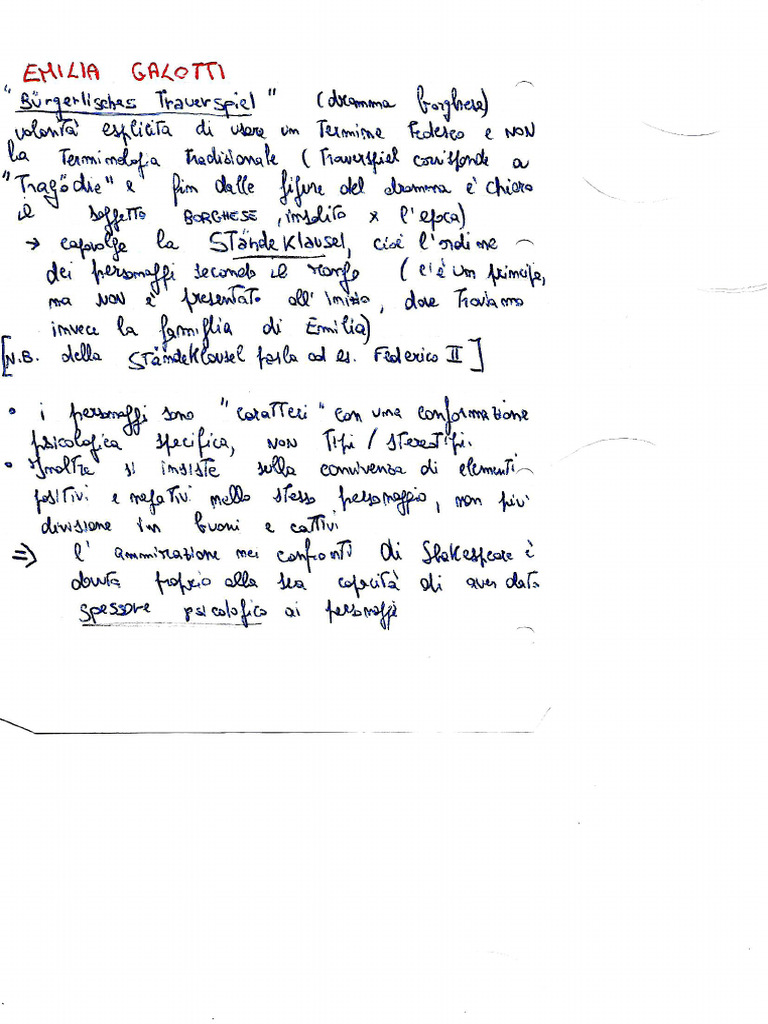 EMILIA GALOTTI
"Bürgerlisches Trauerspiel" (dramma borghese)
volontà esplicita di usare un Termine Tedesco e NON
la Terminologia tradizionale (Trauerspiel corrisponde a
"Tragödie" e fin dalle figure del dramma è chiaro
il soggetto BORGHESE, insolito x l'epoca)
→ capovolge la StändeKlausel, cioè l'ordine
dei personaggi secondo il rango (c'è un principe,
ma NON è presentato all'inizio, dove Troviamo
invece la famiglia di Emilia)
[N.B. della StändeKlausel parla ad es. Federico II]
• i personaggi sono "caratteri" con una conformazione
psicologica specifica, NON Tipi / stereotipi.
• Inoltre si insiste sulla convivenza di elementi
positivi e negativi nello stesso personaggio, non più
divisione in buoni e cattivi
⇒ l'ammirazione nei confronti di Shakespeare è
dovuta proprio alla sua capacità di aver dato
spessore psicologico ai personaggi